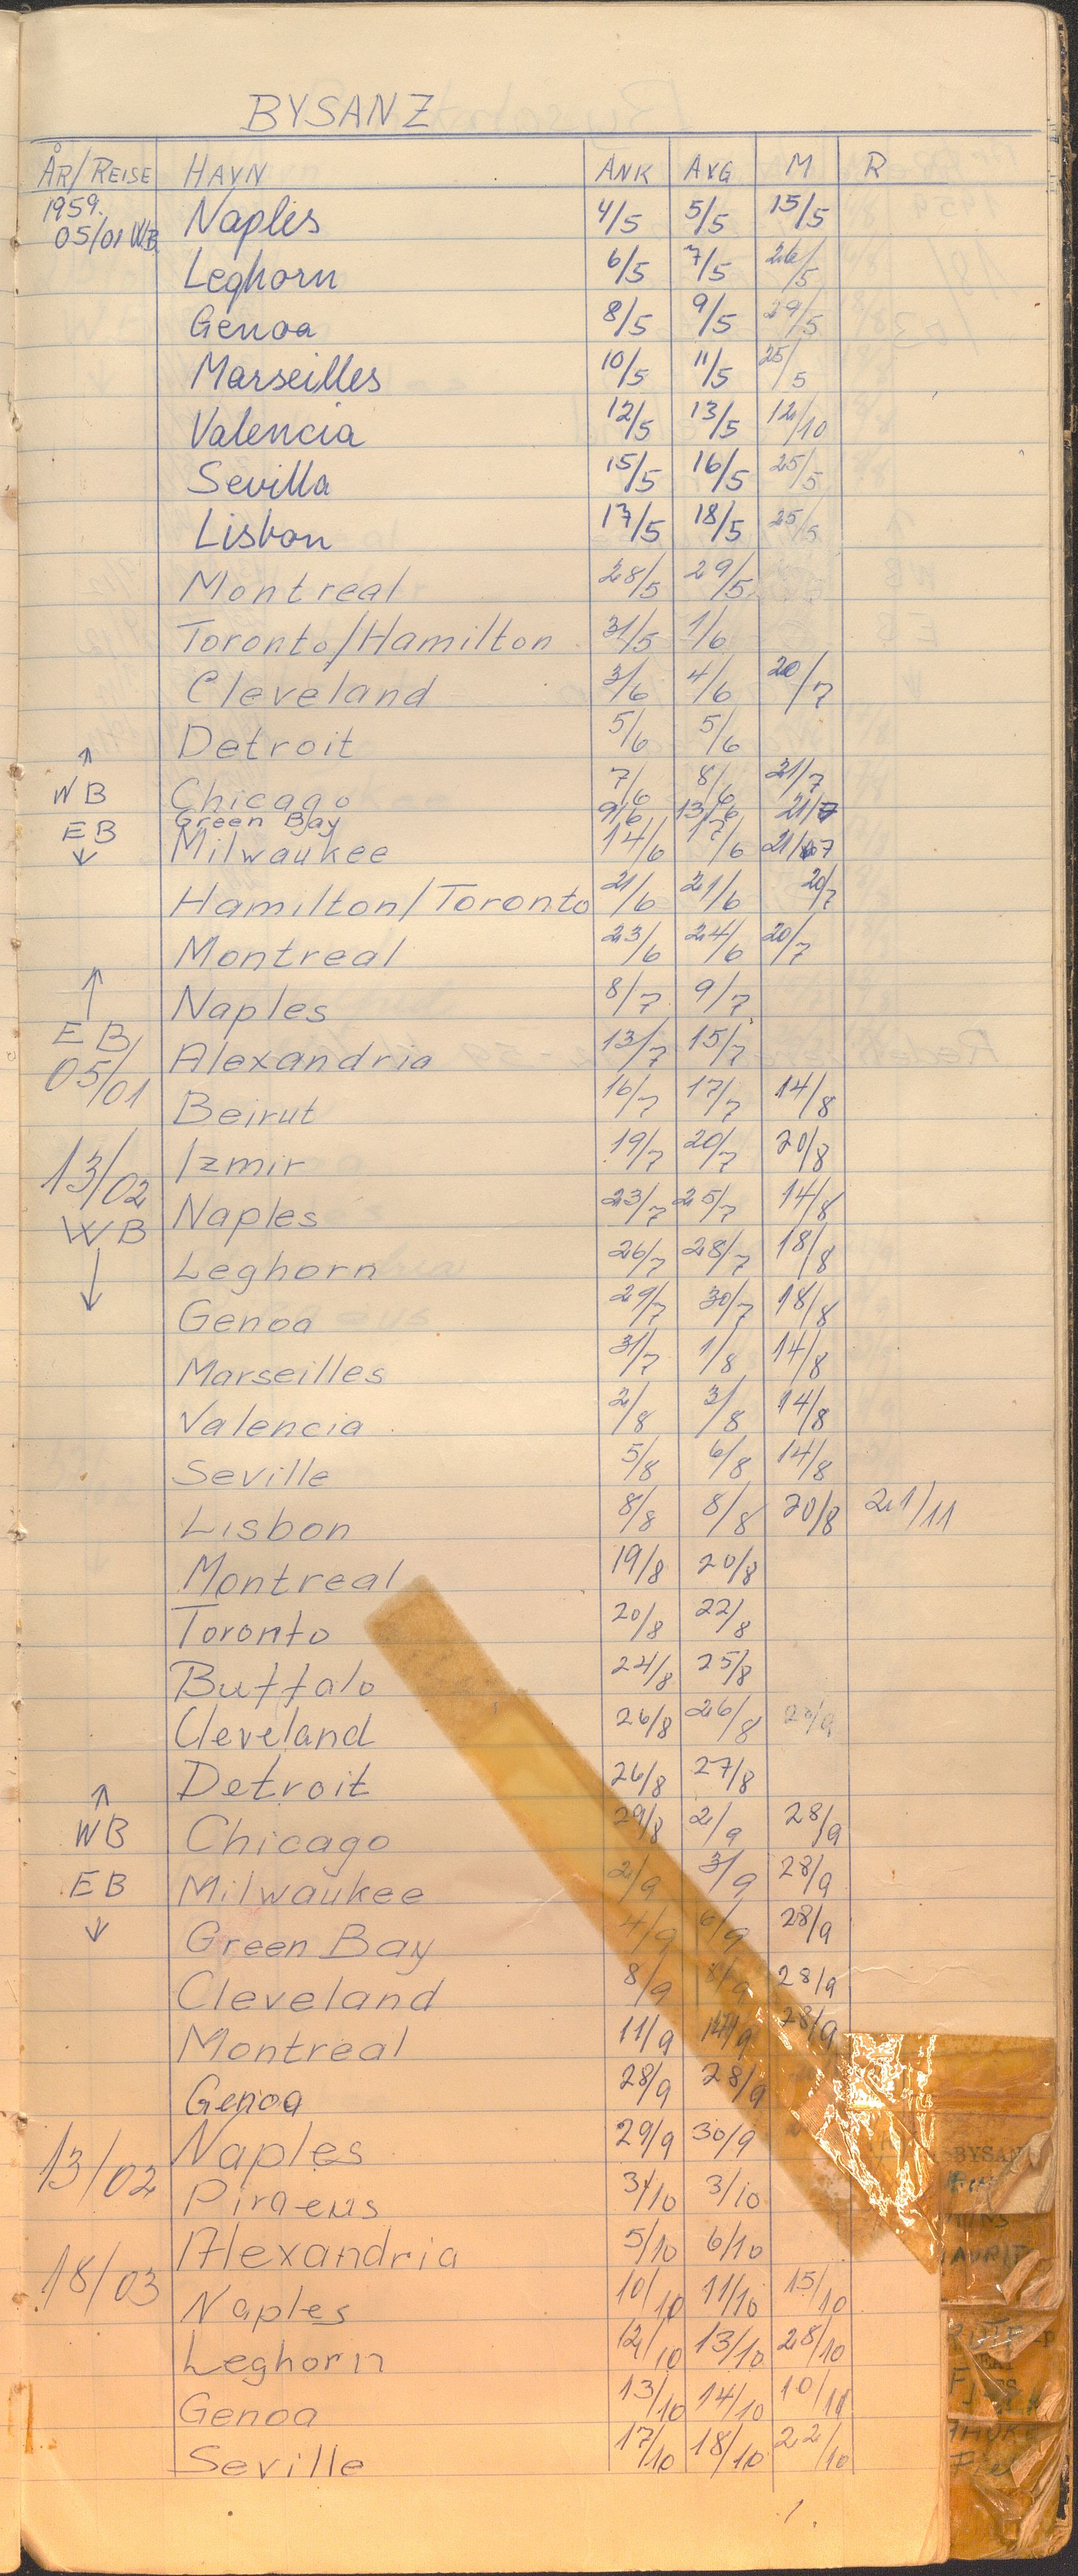 BYSANZ
ÅR/REISE HAVN ANK AVG M R
1959.
05/01 WB Naples 4/5 5/5 15/5
Leghorn 6/5 7/5 26/5
Genoa 8/5 9/5 29/5
Marseilles 10/5 11/5 25/5
Valencia 12/5 13/5 12/10
Sevilla 15/5 16/5 25/5
Lisbon 17/5 18/5 25/5
Montreal 28/5 29/5
Toronto/Hamilton 31/5 1/6
Cleveland 3/6 4/6 20/7
Detroit 5/6 5/6
↑
WB Chicago 7/6 8/6 21/7
Green Bay 9/6 13/6 21/7
EB ↓ Milwaukee 14/6 17/6 21/7
Hamilton/Toronto 21/6 21/6 20/7
Montreal 23/6 24/6 20/7
↑ Naples 8/7 9/7
EB Alexandria 13/7 15/7
05/01 Beirut 16/7 17/7 14/8
13/02 Izmir 19/7 20/7 20/8
WB Naples 23/7 25/7 14/8
↓ Leghorn 26/7 28/7 18/8
Genoa 29/7 30/7 18/8
Marseilles 31/7 1/8 14/8
Valencia 2/8 3/8 14/8
Seville 5/8 6/8 14/8
Lisbon 8/8 8/8 20/8 21/11
Montreal 19/8 20/8
Toronto 20/8 22/8
Buffalo 24/8 25/8
Cleveland 26/8 26/8
Detroit 26/8 27/8
↑
WB Chicago 29/8 2/9 28/9
EB Milwaukee 2/9 3/9 28/9
↓ Green Bay 4/9 6/9 28/9
Cleveland 8/9 8/9 28/9
Montreal 11/9 28/9
Genoa 28/9 28/9
Naples 29/9 30/9
13/02 Piraeus 3/10
Alexandria 5/10 6/10
18/03 Naples 10/10 11/10 15/10
Leghorn 12/10 13/10 28/10
Genoa 13/10 14/10 10/11
Seville 17/10 18/10 22/10